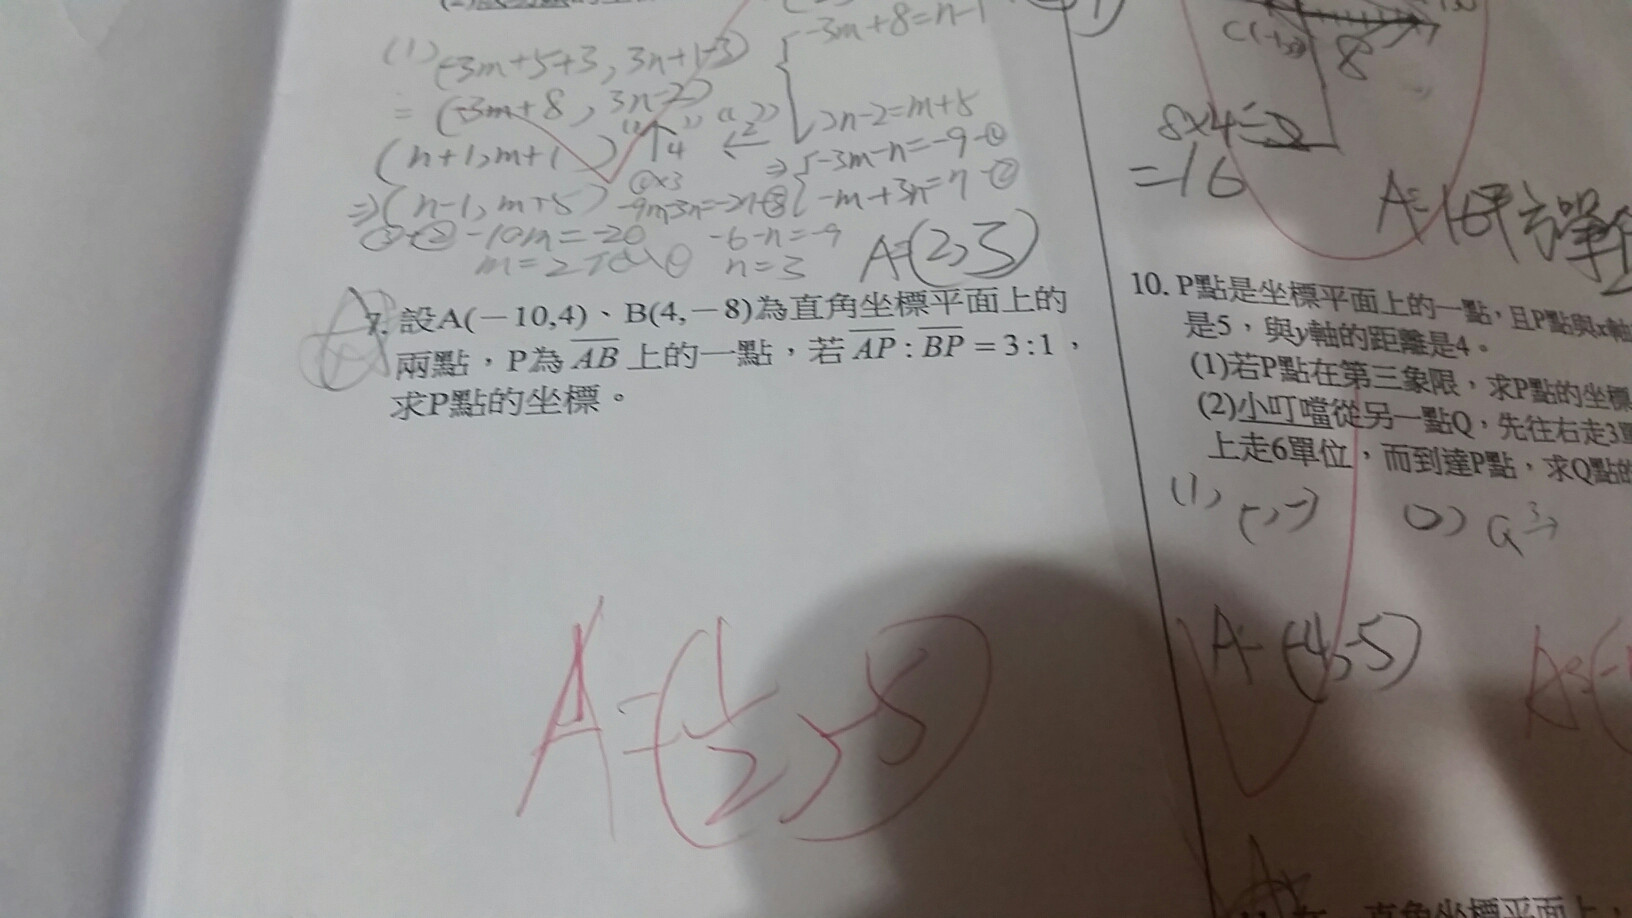 (1) (-3m+5+3, 3n+1-3)
= (-3m+8, 3n-2)
(n+1, m+1)
⇒ (n-1, m+5)
-3m+8=n-1
3n-2=m+5
⇒ -3m-n=-9-①
-m+3n=7-②
①×3
-9m-3n=-27-③
③-② -10m=-20
m=2
-6-n=-9
n=3
A=(2,3)
7. 設A(-10,4)、B(4,-8)為直角坐標平面上的
兩點,P為 AB 上的一點,若 AP : BP = 3 : 1,
求P點的坐標。
A=(1/2, -5)
C(-1,
8
8×4÷2
=16
A=16平方單位
10. P點是坐標平面上的一點,且P點與x軸
是5,與y軸的距離是4。
(1)若P點在第三象限,求P點的坐標
(2)小叮噹從另一點Q,先往右走3單
上走6單位,而到達P點,求Q點的
(1) (-,-)
(2) Q 3→
A=(-4,-5)
A=(-
直角坐標平面上,